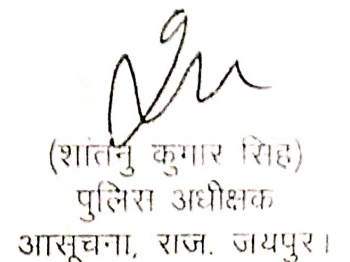 (शांतनु कुमार सिंह)
पुलिस अधीक्षक
आसूचना, राज. जयपुर।